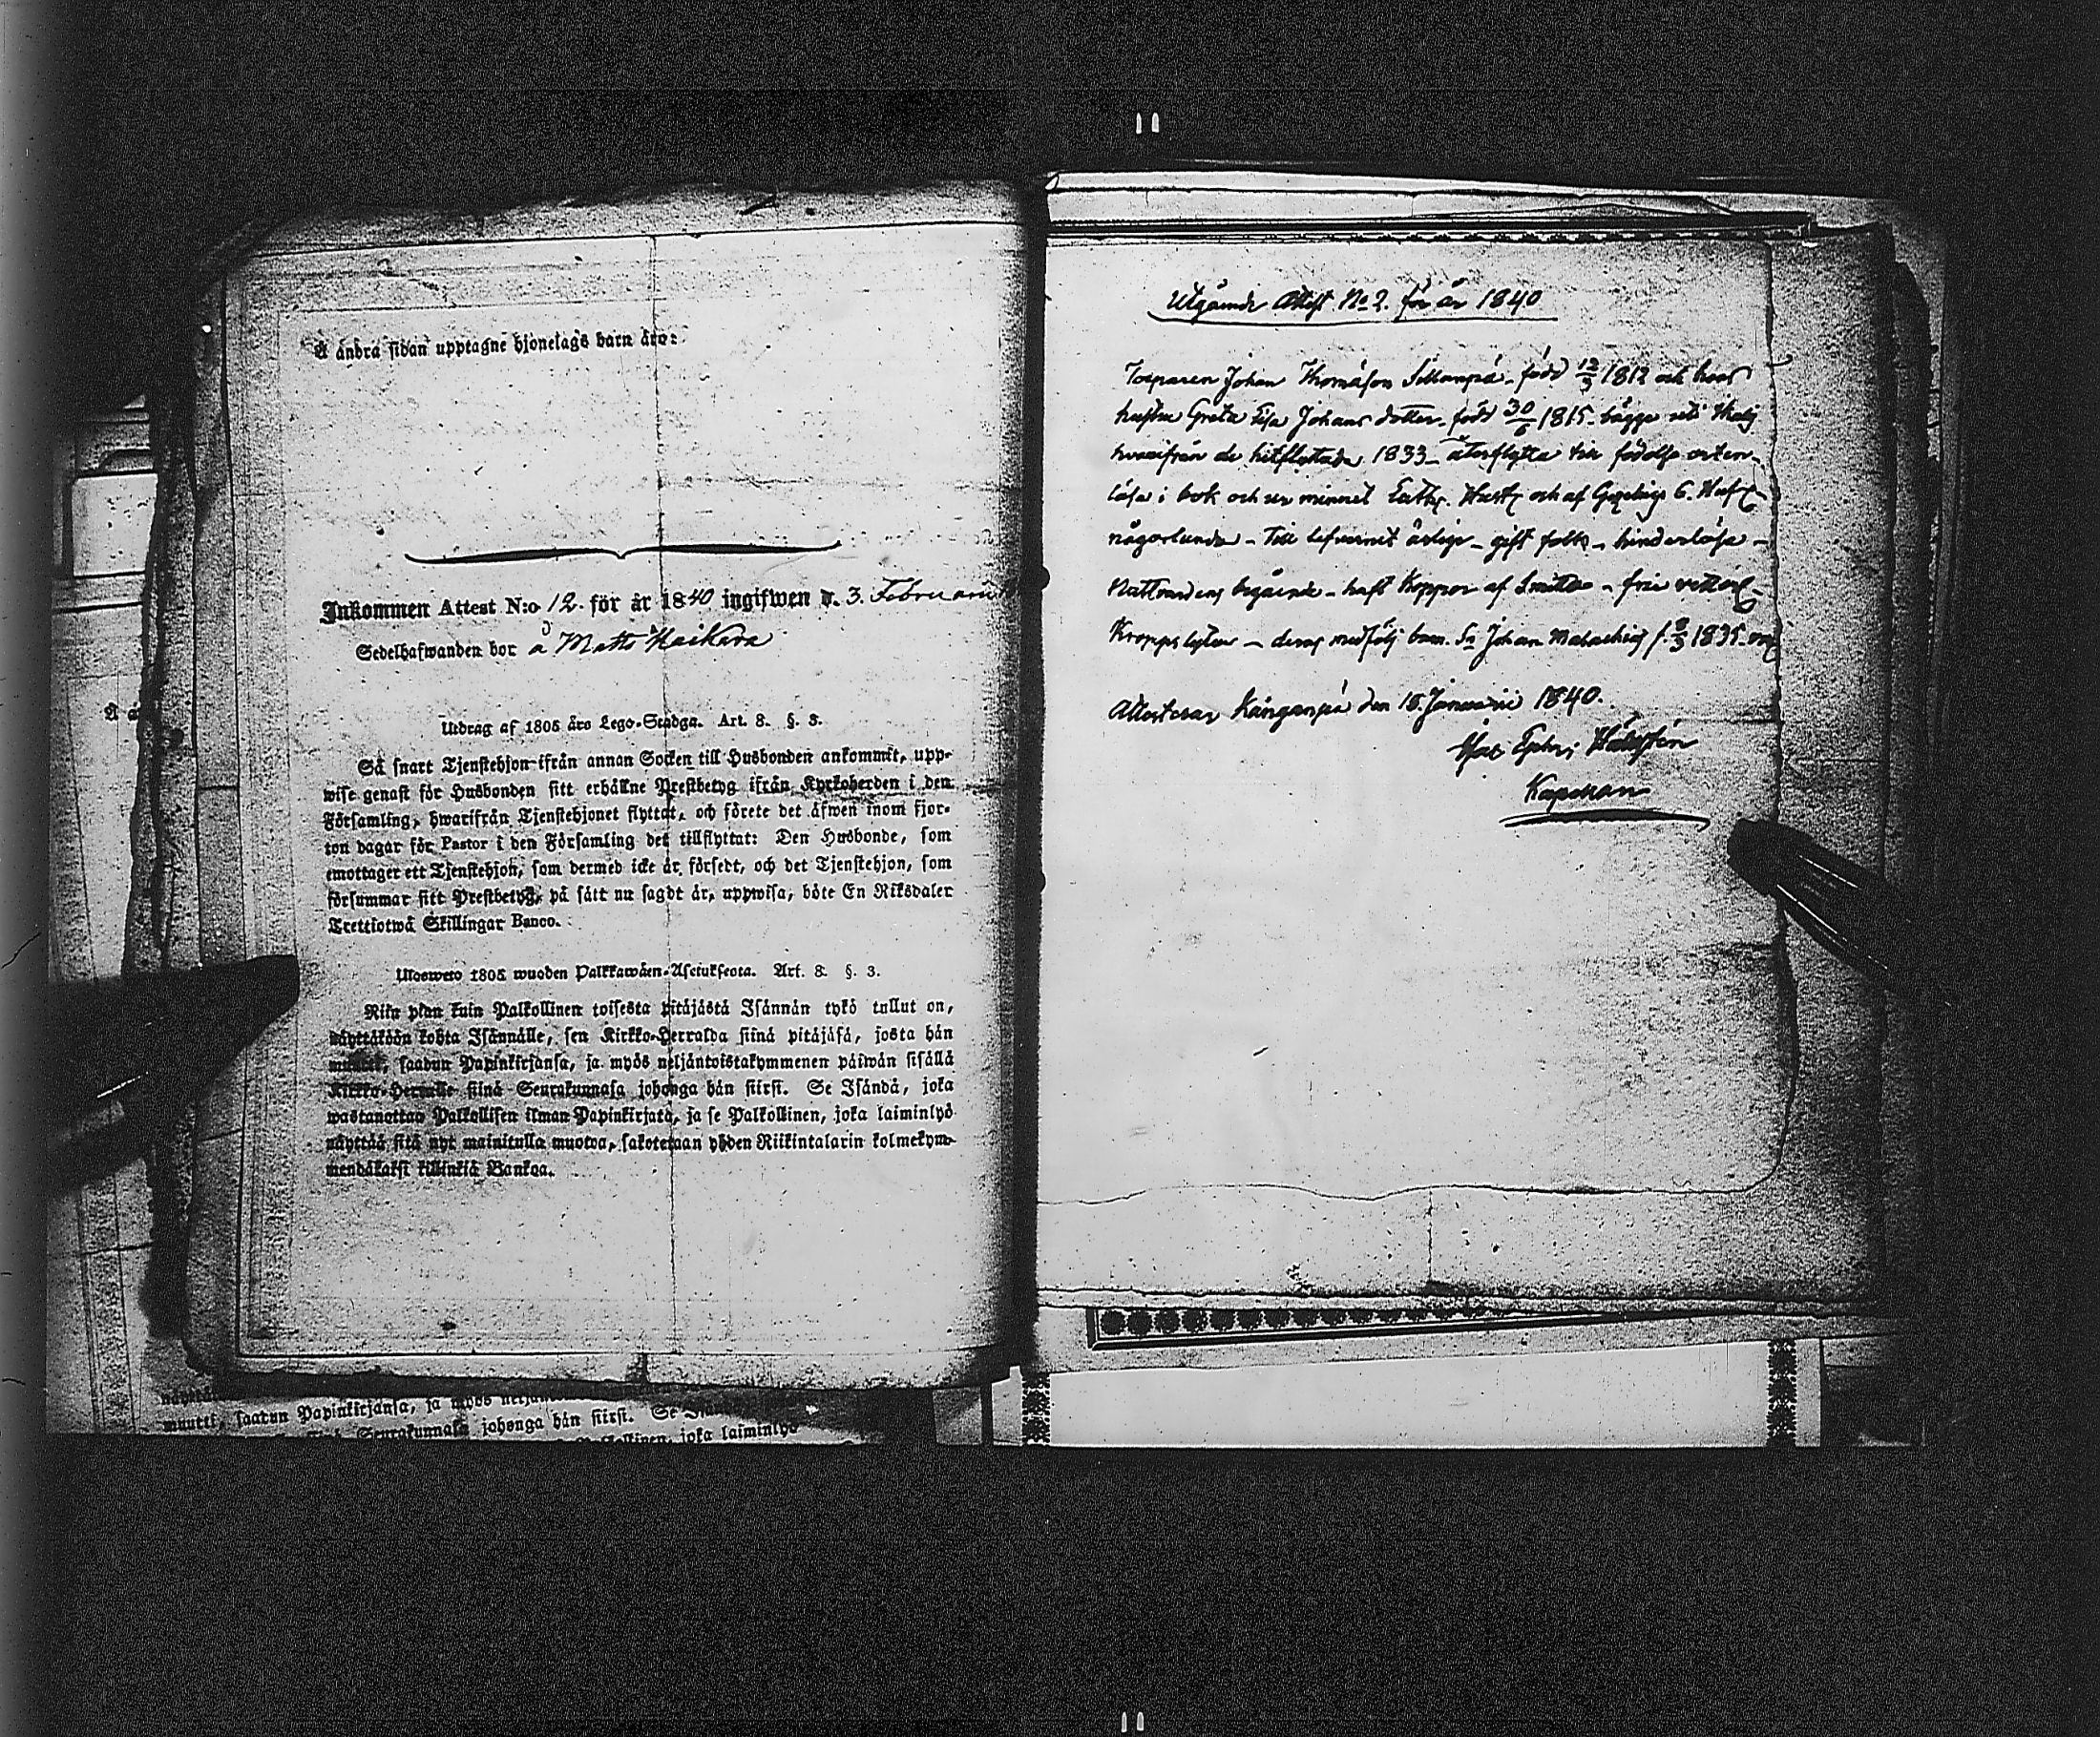 Å andra sidan upptagne hjonelags barn äro:
Inkommen Attest N:o 12. för år 1840 ingifwen d. 3. Februarii
Sedelhafwanden bor å Matts Haikara
Utdrag af 1805 års Lego-Stadga. Art. 8. §. 3.
Så snart Tjenstehjon ifrån annan Socken till Husbonden ankommit, upp-
wise genast för Husbonden sitt erhållne Prestbetyg ifrån Kyrkoherden i den
Församling, hwarifrån Tjenstehjonet flyttat, och förete det äfwen inom fjor-
ton dagar för Pastor i den Församling det tillflyttat: Den Husbonde, som
emottager ett Tjenstehjon, som dermed icke är försedt, och det Tjenstehjon, som
försummar sitt Prestbetyg, på sätt nu sagdt är, uppwisa, böte En Riksdaler
Trettiotwå Skillingar Banco.
Ulosweto 1805 wuoden Palkkawäen-Asetuksesta. Art. 8. §. 3.
Niin pian kuin Palkollinen toisesta pitäjästä Isännän tykö tullut on,
näyttäkään kohta Isännälle, sen Kirkko-Herralda siinä pitäjäsä, josta hän
muutti, saadun Papinkirjansa, ja myös neljäntoistakymmenen päiwän sisällä
Kirkko-Herralle siinä Seurakunnasa johonga hän siirsi. Se Isändä, joka
wastanottaa Palkollisen ilman Papinkirjata, ja se Palkollinen, joka laiminlyö
näyttää sitä nyt mainitulla muotoa, sakotetaan yhden Riikintalarin kolmekym-
mendäkaksi killinkiä Bankoa.
muutti, saatun Papinkirjansa, ja myös neljän
Seurakunnasa johonga hän siirsi. Se
joka laiminlyö
Utgående Attest No 2. för år 1840
Torparen Johan Thomasson Sillanpä, född 12/3 1812 och hans
hustru Greta Lisa Johansdotter född 30/6 1815 bägge uti
hvarifrån de hitflyttade 1833 återflytta till födelse orten
läsa i bok och ur minnet Cathz. Hustz och af
någorlunda - Till lefvernet ärlige - gift folk - hinderlösa -
Nattvardens begående - haft Koppor af Smitta - fria
Kroppslyten - deras medfölj barn. Sn Johan 1835.
Attesterar Kangaanpä den 18. Januarii 1840.
Kapellan